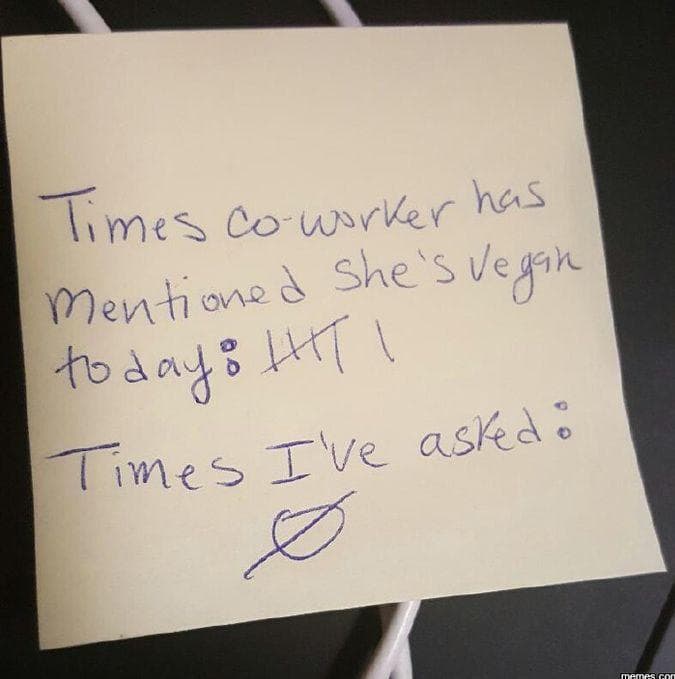 Times co-worker has
mentioned she's vegan
today: 𝍸 |
Times I've asked:
Ø
memes.com